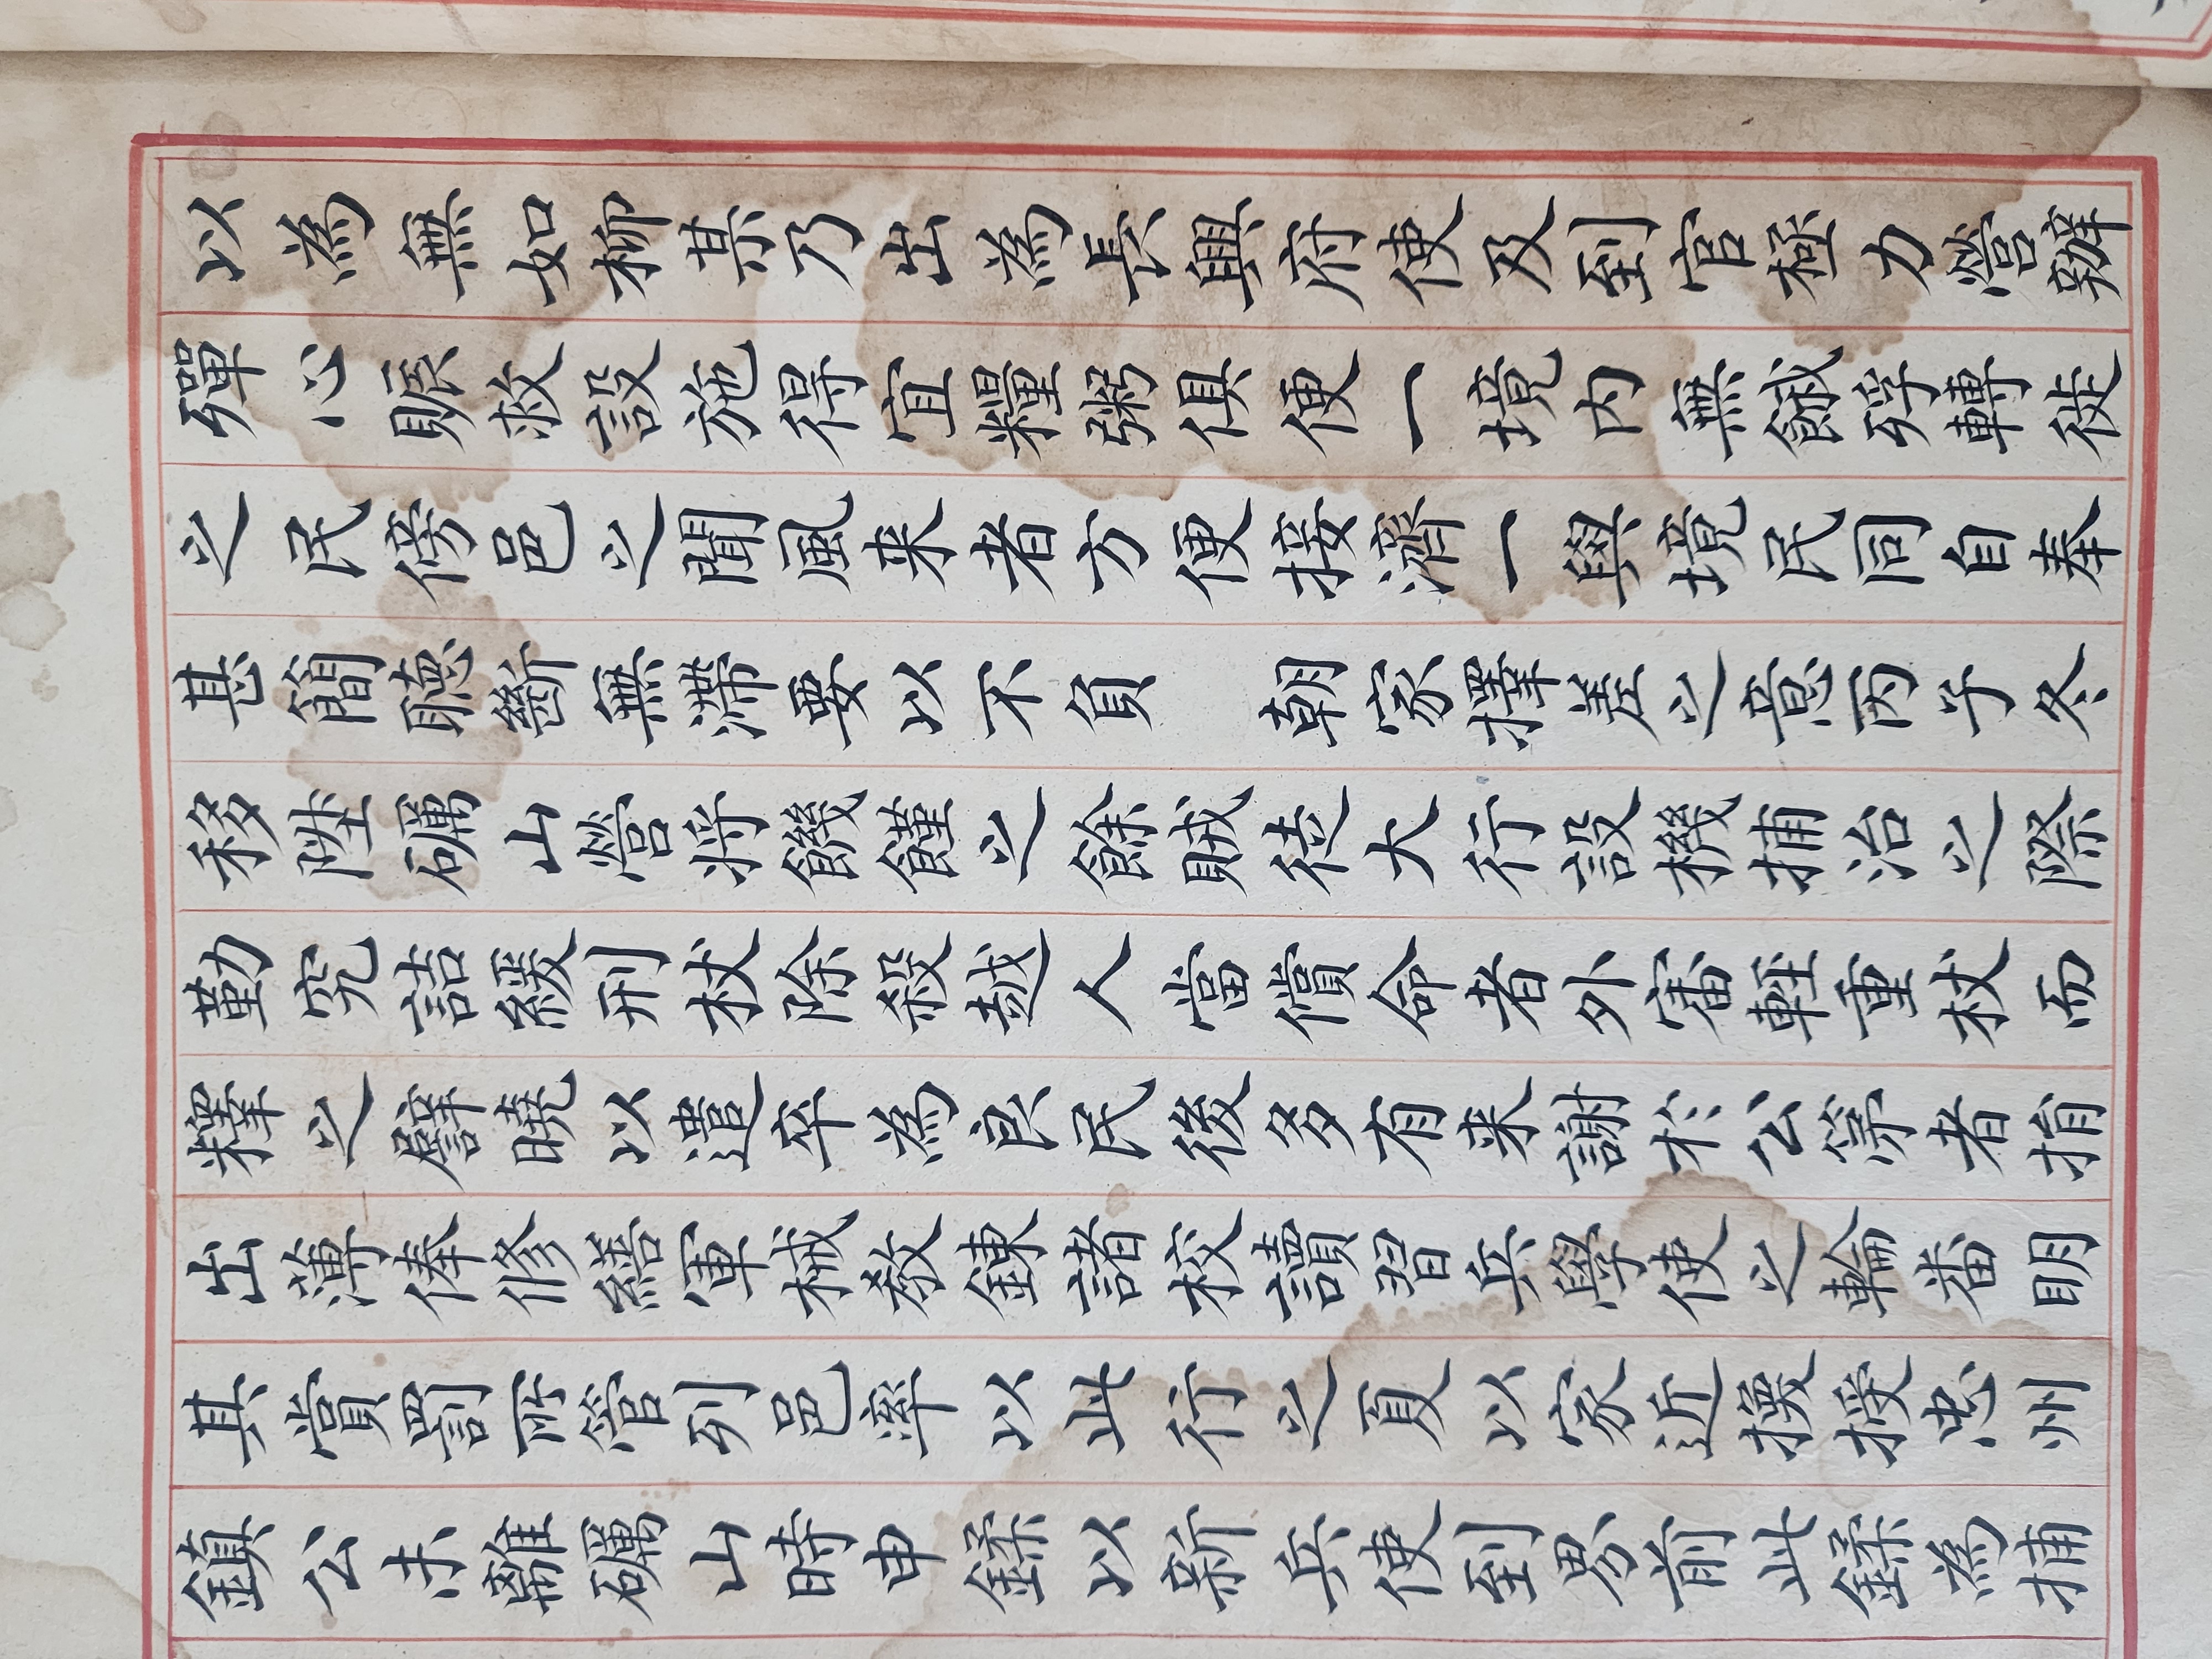 以為無如柳某乃出為長興府使及到官極力營辦
殫心賑救設施得宜糧粥俱便一境内無餓殍轉徙
之民傍邑之聞風来者方便接濟一與境民同自奉
甚簡聽斷無滯要以不負 朝家擇差之意丙子冬
移陞礪山營將饑饉之餘賊徒大行設機捕治之際
勤究詰緩刑杖除殺越人當償命者外審輕重杖而
釋之譬曉以遣卒為良民後多有来謝於公等者捐
出薄俸修繕軍械教鍊諸校讀習兵學使之輪番明
其賞罰所管列邑率以此行之夏以家近換授忠州
鎮公未離礪山時申以新兵使到界前此為捕